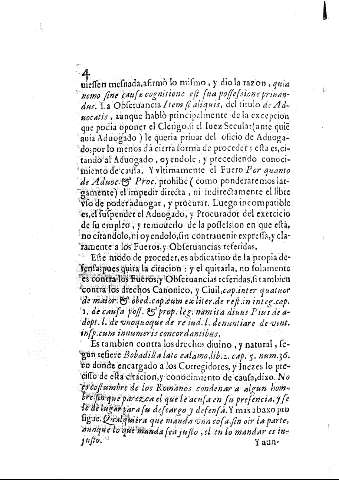 4
uiessen mesnada, afirmò lo mismo, y dio la razon, quia
nemo sine causæ cognitione est sua possessione priuan-
dus. La Obseruancia Item si aliquis, del titulo de Ad-
uocatis, aunque hablò principalmente de la excepcion
que podia oponer el Clerigo si el Iuez Secular (ante quiē
auia Aduogado) le queria priuar del oficio de Aduoga-
do; por lo menos dà cierta forma de proceder; esta es, ci-
tando al Aduogado, oyendole, y precediendo conoci-
miento de causa. Y vltimamente el Fuero Por quanto
de Aduoc. & Proc. prohibe (como ponderaremos lar-
gamente) el impedir directa, ni indirectamente el libre
vso de poder aduogar, y procurar. Luego incompatible
es, el suspender el Aduogado, y Procurador del exercicio
de su empleo, y remouerlo de la possession en que està,
no citandolo, ni oyendolo, sin contrauenir expressa, y cla-
ramente a los Fueros, y Obseruancias referidas.
Este modo de proceder, es ablicatino de la propia de-
fensa; pues quita la citacion: y el quitarla, no solamente
es contra los Fueros, y Obseruancias referidas, si tambien
contra los drechos Canonico, y Ciuil, cap. inter quatuor
de maior. & obed. cap. cum ex liter. de rest. in integ. cap.
1. de causa poss. & prop. leg. nam ita diuus Pius de a-
dopt. l. de vnoquoque de re iud. l. denuntiare de vent.
insp. cum innumeris concordantibus.
Es tambien contra los drechos diuino, y natural, se-
gun refiere Bobadilla lato calamo, lib. 2. cap. 3. num. 36.
en donde encargado a los Corregidores, y Iuezes lo pre-
cisso de esta citacion, y conocimiento de causa, dizo. No
es costumbre de los Romanos condenar a algun hom-
bre sin que parezca el que le acusa en su presencia, y se
le de lugar para su descargo y defensa. Y mas abaxo pro
sigue. Qualquiera que manda vna cosa sin oir la parte,
aunque lo que manda sea justo, el tu lo mandar es in-
justo.
Y aun-